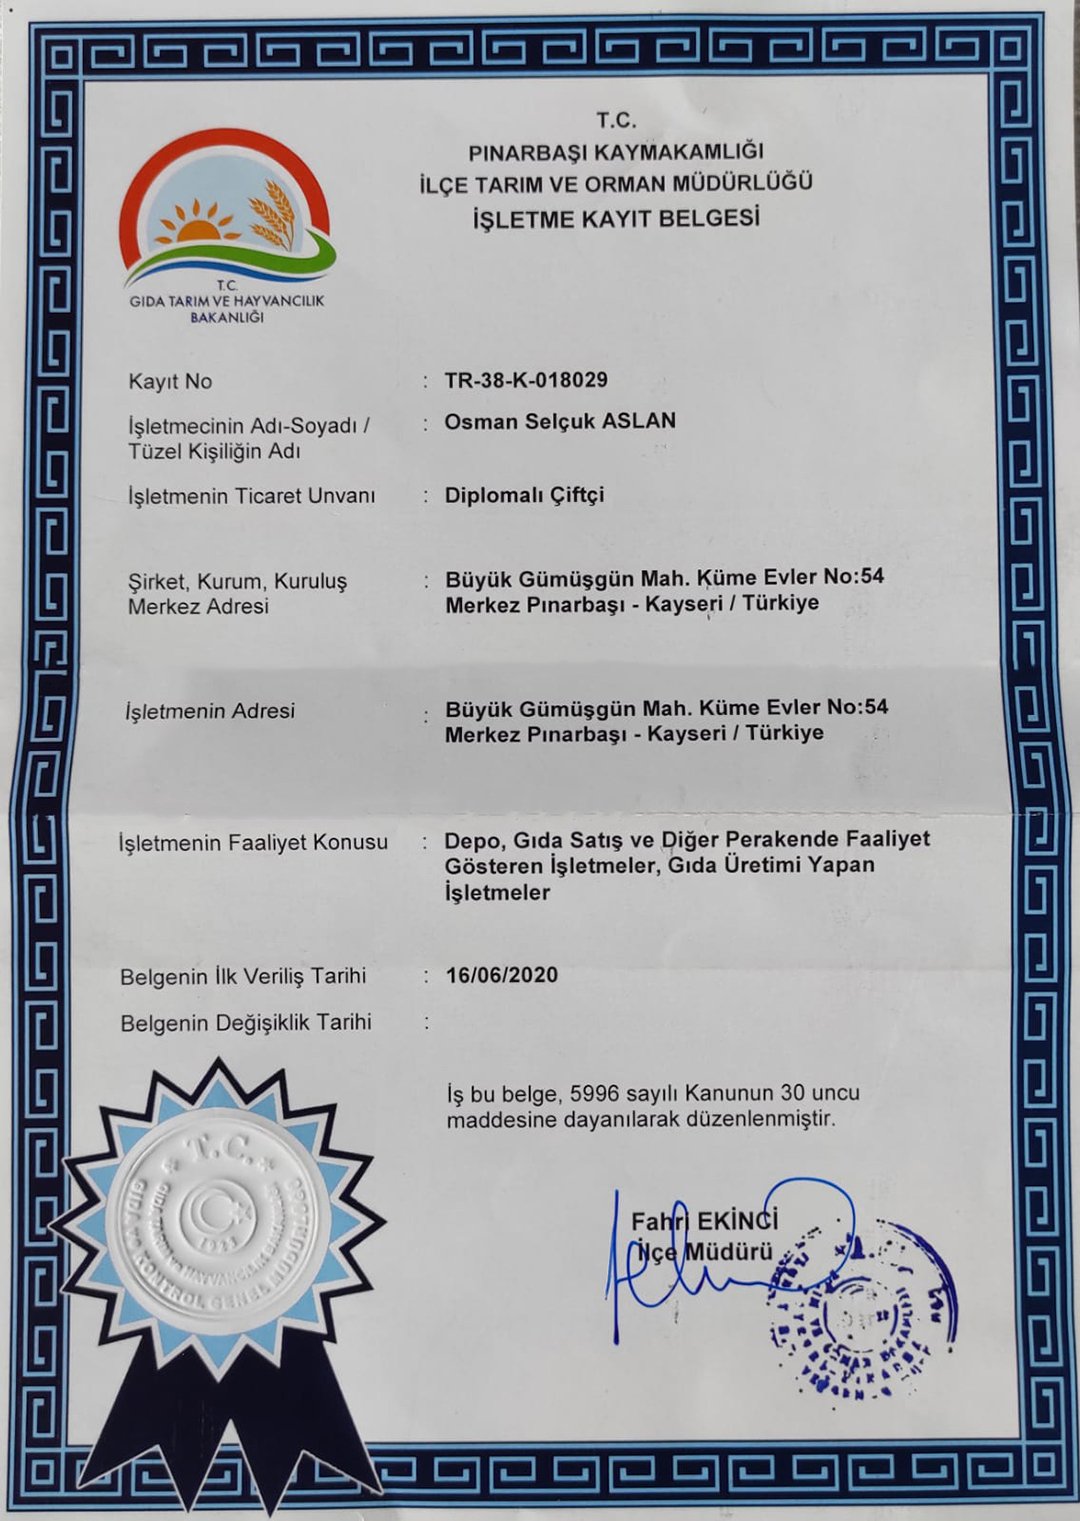 T.C.
PINARBAŞI KAYMAKAMLIĞI
İLÇE TARIM VE ORMAN MÜDÜRLÜĞÜ
İŞLETME KAYIT BELGESİ
T.C.
GIDA TARIM VE HAYVANCILIK
BAKANLIĞI
Kayıt No : TR-38-K-018029
İşletmecinin Adı-Soyadı / : Osman Selçuk ASLAN
Tüzel Kişiliğin Adı
İşletmenin Ticaret Unvanı : Diplomalı Çiftçi
Şirket, Kurum, Kuruluş : Büyük Gümüşgün Mah. Küme Evler No:54
Merkez Adresi Merkez Pınarbaşı - Kayseri / Türkiye
İşletmenin Adresi : Büyük Gümüşgün Mah. Küme Evler No:54
Merkez Pınarbaşı - Kayseri / Türkiye
İşletmenin Faaliyet Konusu : Depo, Gıda Satış ve Diğer Perakende Faaliyet
Gösteren İşletmeler, Gıda Üretimi Yapan
İşletmeler
Belgenin İlk Veriliş Tarihi : 16/06/2020
Belgenin Değişiklik Tarihi :
İş bu belge, 5996 sayılı Kanunun 30 uncu
maddesine dayanılarak düzenlenmiştir.
Fahri EKİNCİ
İlçe Müdürü
T.C.
GIDA TARIM VE HAYVANCILIK BAKANLIĞI
GIDA VE KONTROL GENEL MÜDÜRLÜĞÜ